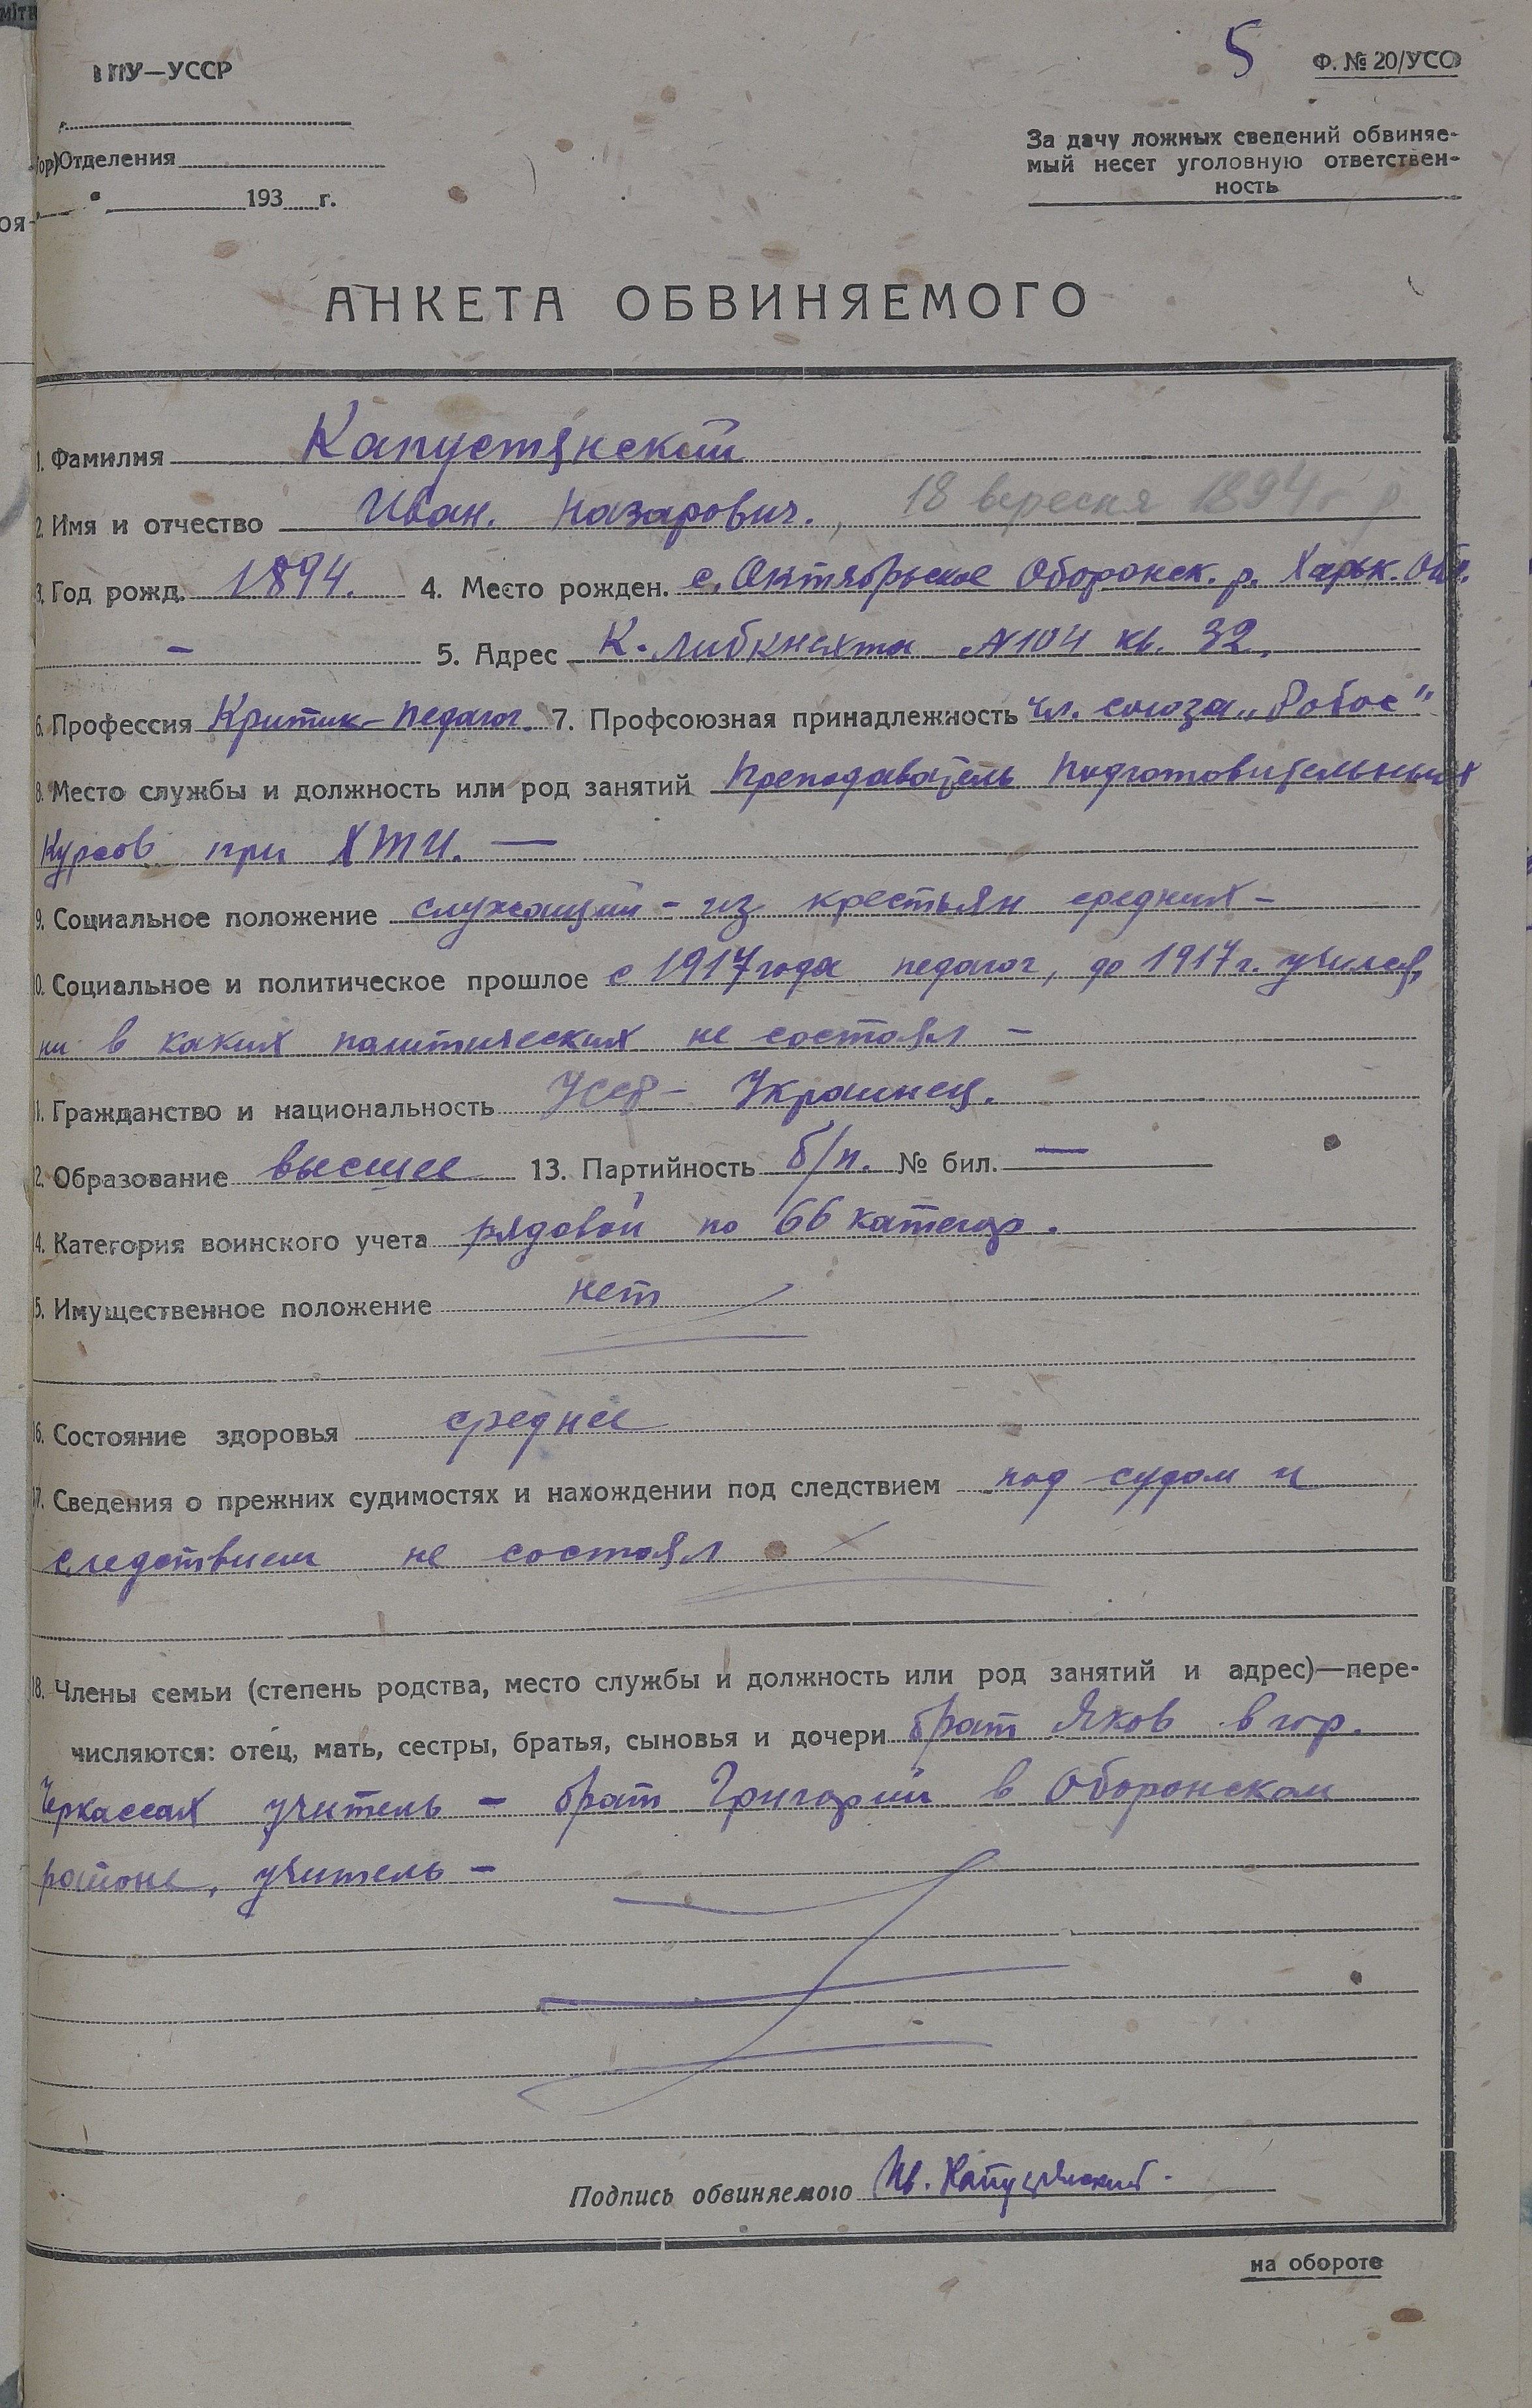 ГПУ—УССР
5
Ф. № 20/УСО
Отделения
193 г.
За дачу ложных сведений обвиняе-
мый несет уголовную ответствен-
ность
АНКЕТА ОБВИНЯЕМОГО
1. Фамилия Капустянский
2. Имя и отчество Иван. Назарович., 18 вересня 1894 г
3. Год рожд. 1894. 4. Место рожден. с. Октябрьское Оборонск. р. Харьк. Обл.
— 5. Адрес К. Либкнехта №104 кв. 32.
6. Профессия Критик-педагог 7. Профсоюзная принадлежность чл. союза „Робос"
8. Место службы и должность или род занятий преподаватель подготовительных
курсов при ХТИ. —
9. Социальное положение служащий - из крестьян средних -
10. Социальное и политическое прошлое с 1917 года педагог, до 1917 г. учился,
ни в каких политических не состоял -
11. Гражданство и национальность УССР - Украинец.
12. Образование высшее 13. Партийность б/п. № бил. —
14. Категория воинского учета рядовой по 66 категор.
15. Имущественное положение нет
16. Состояние здоровья среднее
17. Сведения о прежних судимостях и нахождении под следствием под судом и
следствием не состоял
18. Члены семьи (степень родства, место службы и должность или род занятий и адрес)—пере-
числяются: отец, мать, сестры, братья, сыновья и дочери брат Яков в гор.
Черкассах учитель - брат Григорий в Оборонском
районе, учитель -
Подпись обвиняемого Ив. Капустянский.
на обороте